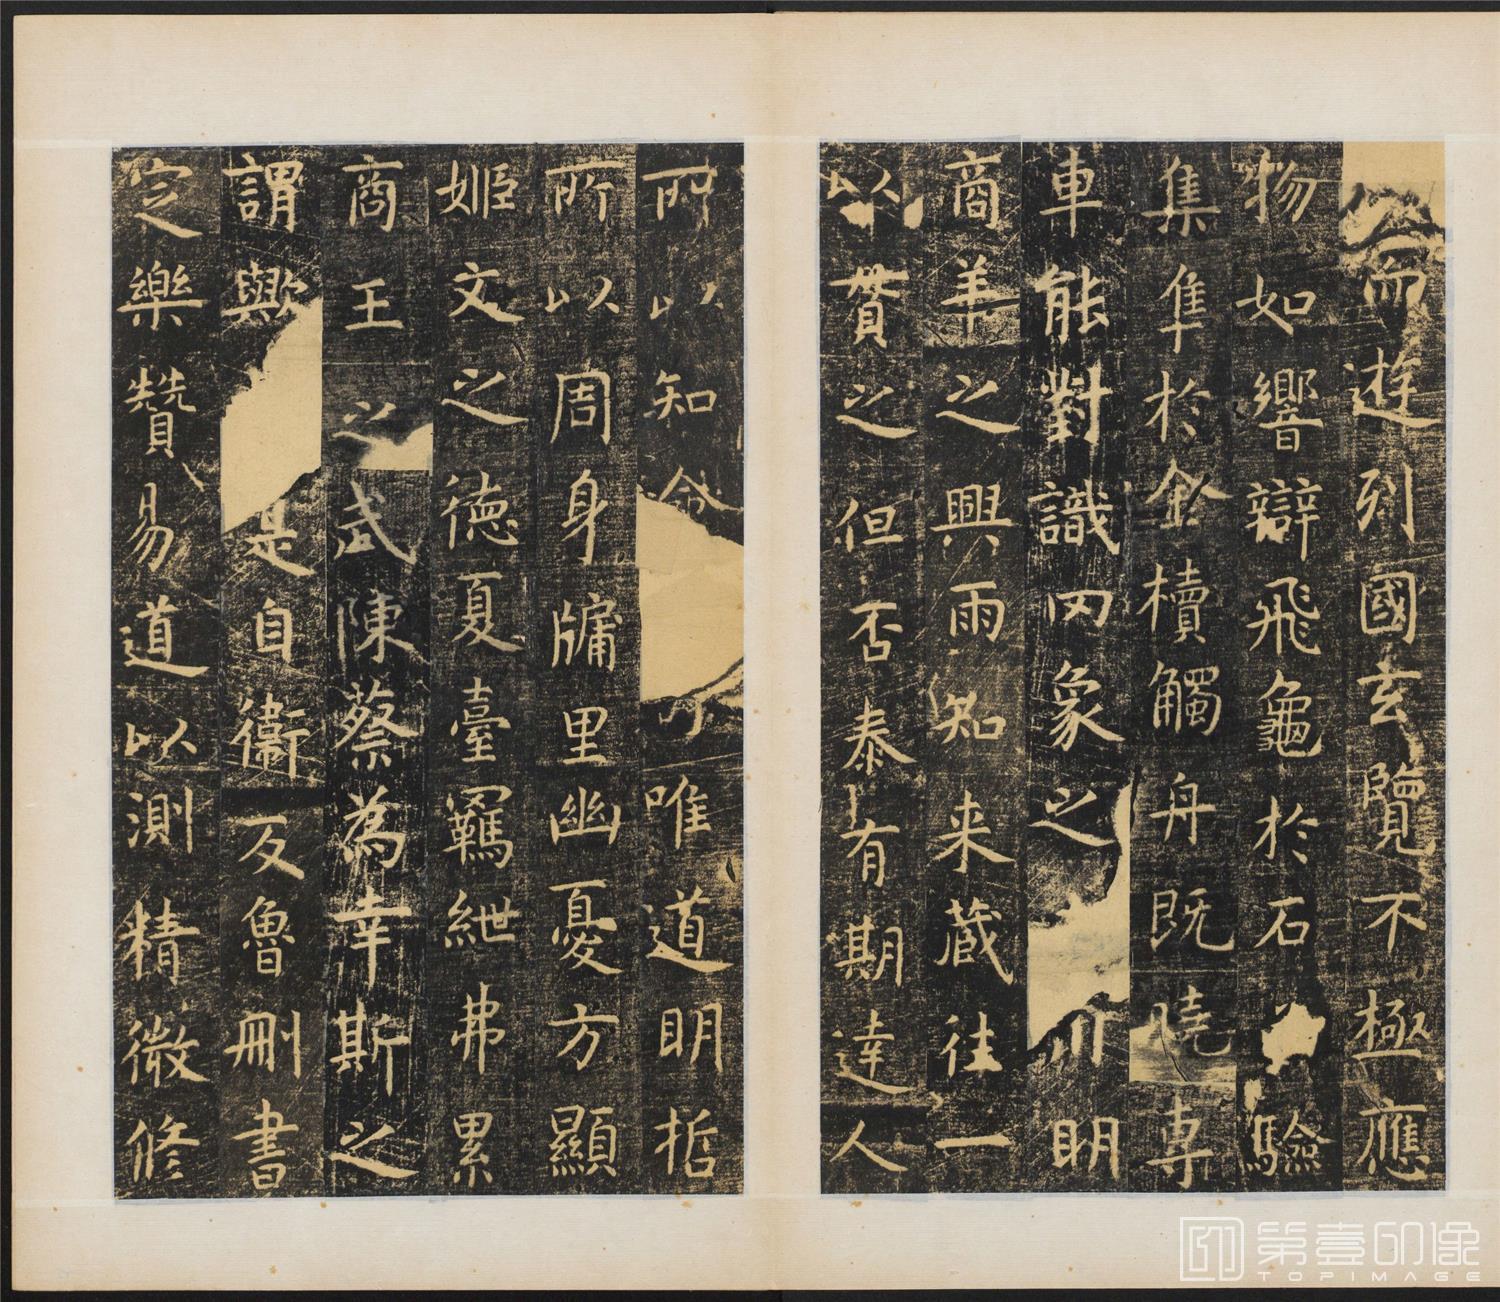 而遊列國玄覽不極應
物如響辯飛龜於石驗
集隼於金櫝觸舟既曉專
車能對識罔象之川明
商羊之興雨知来藏往一
以貫之但否泰有期達人
所以知命唯道明哲
所以周身牖里幽憂方顯
姬文之德夏臺羈紲弗累
商王之武陳蔡為幸斯之
謂歟是自衛反魯刪書
定樂贊易道以測精微修
第壹印像
TOPIMAGE